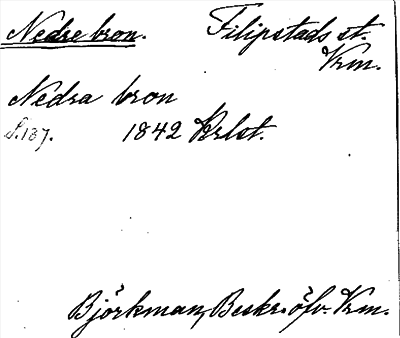 Nedre bron. Filipstads st.
Vrm.
Nedra bron
S. 137. 1842 Krlst.
Björkman, Beskr. öfv. Vrm.